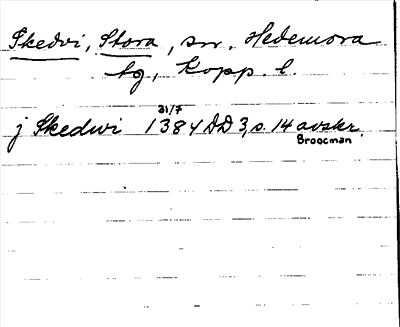 Skedvi, Stora, sn. Hedemora
tg, Kopp. l.
31/7
j Skedwi 1384 DD 3, s. 14 avskr.
Broocman